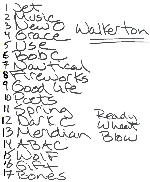 1 Jet
2 Music
3 New O
4 Grace
5 Use
6 BobC
7 Nautical
8 Fireworks
9 Good life
10 Poets
11 Spring
12 Dark C
13 Meridian
14 ABAC
15 Wolf
16 Gift
17 Bones
Walkerton
Ready
Wheat
Blow